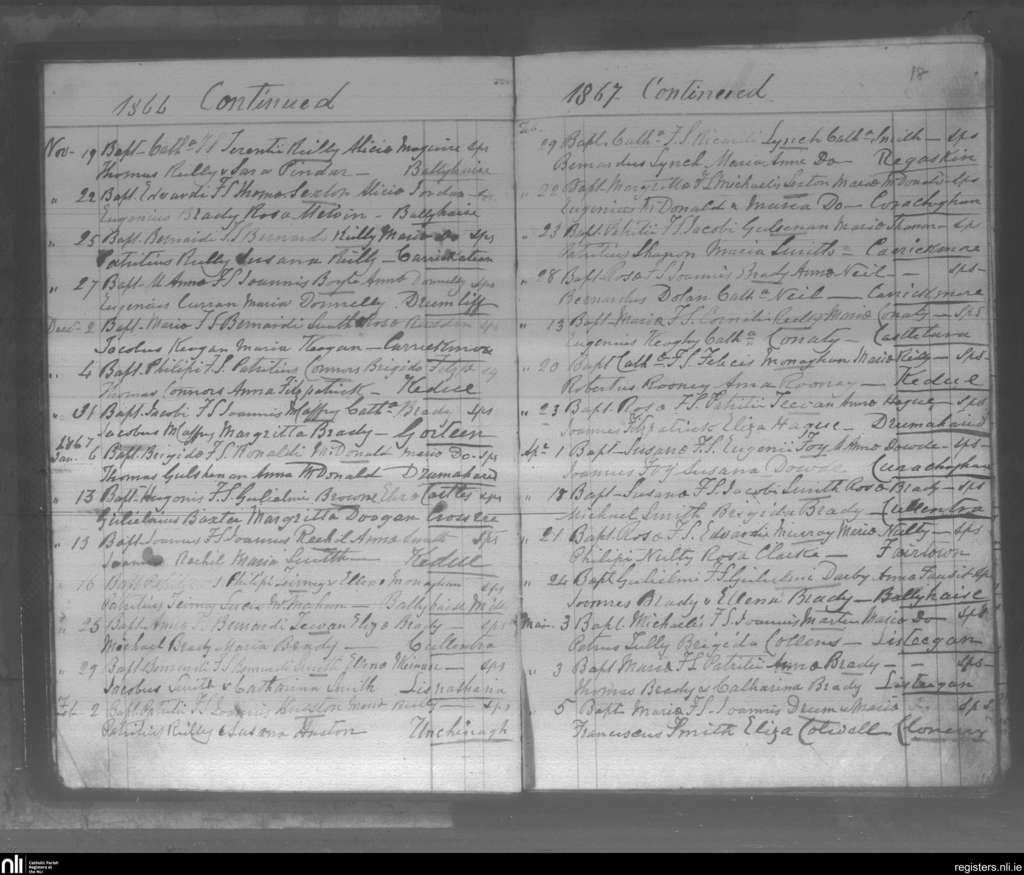 1866 Continued
Nov- 19 Bapt- Cath.a F.S. Terentii Reilly Alicia Maguire sps
Thomas Reilly & Sara Pindar - Ballyhaise
" 22 Bapt. Edwardi F.S. Thomae Sexton Alicia
Eugenius Brady Rosa - Ballyhaise
" 25 Bapt. Bernardi F.S. Bernardi Reilly Maria Do sps
Patritius Reilly Susana Reilly -
" 27 Bapt- M Anna F.S. Joannis Boyle Anna Donnelly sps
Eugenius Curran Maria Donnelly Drumliff
Decr- 2 Bapt- Maria F.S. Bernardi Smith Rosa sps
Jacobus Keogan Maria Keogan - Carrickmore
" 4 Bapt. Philipi F.S. Patritius Connors Brigida
Thomas Connors Anna Fitzpatrick - Kedue
" 31 Bapt. Jacobi F.S. Joannis McCaffry Cath.a Brady - sps
Jacobus McCaffry Margritta Brady - Gorteen
1867
Jan. 6 Bapt. Brigida F.S. Ronaldi McDonald Maria Do - sps
Thomas Anna McDonald Drumahard
" 13 Bapt. Hugonis F.S. Gulielmi Browne Eliza sps
Gulielmus Baxter Margritta Doogan Crossrea
" 13 Bapt Joannis F.S. Joannis Rachil Anna Smith sps
Rachil Maria Smith - Kedue
" 16 Bapt F.S. Philipi Ellena Monaghan sps
Patritius - Ballyhaise
" 25 Bapt. Anna F.S. Bernardi Eliza Brady - sps
Michael Brady Maria Brady - Cullentra
" 29 Bapt Bernardi F.S. Bernardi Smith - sps
Jacobus Smith & Catharina Smith Lisnashana
Feb- 2 Bapt. Patritii F.S. Joannis Reilly - sps
Patritius Reilly & Susana Unchinagh
18
1867 Continued
Feb.
Bapt. Cath.a F.S. Ricardi Lynch Cath.a Smith - sps
Bernardus Lynch Maria Anne Do - Regaskin
" 22 Bapt. Margritta F.S. Michaelis Sexton Maria McDonald - sps
Eugenius McDonald & Maria Do -
" 23 Bapt. Patritii F.S. Jacobi Maria
Patritius Maria Smith - Carrickmore
" 28 Bapt- Rosa F.S. Joannis Brady Anna Neil - sps -
Bernardus Dolan Cath.a Neil - Carrickmore
" 13 Bapt- Maria F.S. Cornelii Reilly Maria Conaty - sps
Eugenius Keoghy Cath.a Conaty - Castletara
" 20 Bapt Cath.a F.S. Felicis Monaghan Maria Reilly - sps -
Robertus Rooney Anna Rooney - Kedue
" 23 Bapt. Rosa F.S. Patritii Teevan Anna Hague - sps
Joannis Fitzpatrick Eliza Hague - Drumahaird
Apr- 1 Bapt- Susana F.S. Eugenii Foy & Anna Dowde - sps -
Joannes Foy Susana
" 18 Bapt- Susana F.S. Jacobi Smith Rosa Brady - sps
Michael Smith Brigida Brady - Cullentra
" 21 Bapt. Rosa F.S. Edwardi Murray Maria Nulty - sps
Philipi Nulty Rosa Clarke - Fairtown
" 24 Bapt Gulielmi F.S. Gulielmi Darby Anna
Joannes Brady & Ellena Brady - Ballyhaise
Mai- 3 Bapt. Michaelis F.S. Joannis Martin Maria Do sps
Petrus Tully Brigida Collens - Listeagan
" 3 Bapt Maria F.S. Patritii Anna Brady - - sps -
Thomas Brady & Catharina Brady Listeagan
" 5 Bapt- Maria F.S. Joannis Drum & Maria sps
Franciscus Smith Eliza Colwell
nli Catholic Parish Registers at the NLI
registers.nli.ie